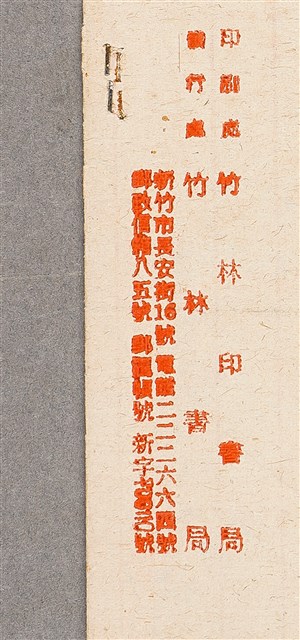 印刷處竹林印書局
發行處竹林書局
新竹市長安街16號 電話二二二六六四號
郵政信箱八五號 郵匯帳號 新字